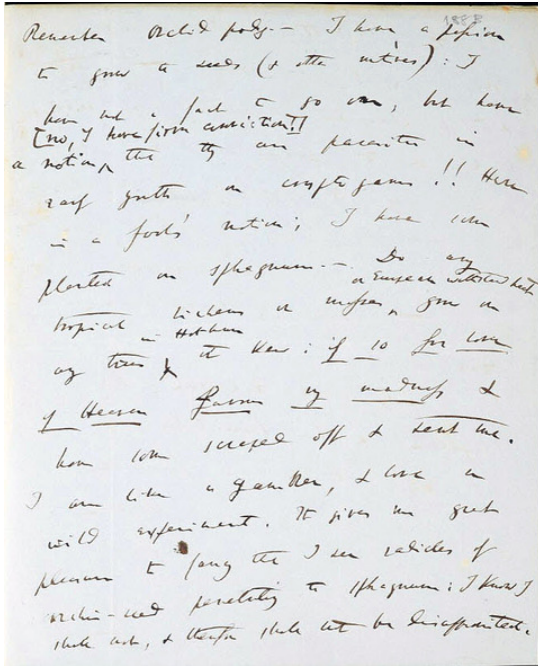 188 B
Remember Orchid pods.— I have a passion
to grow the seeds (& other motives): I
have not a fact to go on, but have
[no, I have firm conviction!]
a notion, that they are parasites in
early youth on cryptogams!! Here
is a fool's notion; I have some
planted on sphagnum.— Do any
tropical lichens or mosses, grow on
or European withstand heat
any trees at Kew: if so for love
in Hothouse
of Heaven favour my madness &
have some scraped off & sent me.
I am like a gambler, & love a
wild experiment. It gives me great
pleasure to fancy that I see radicles of
orchis-seed penetrating the sphagnum: I know I
shall not, & therefore shall not be disappointed.